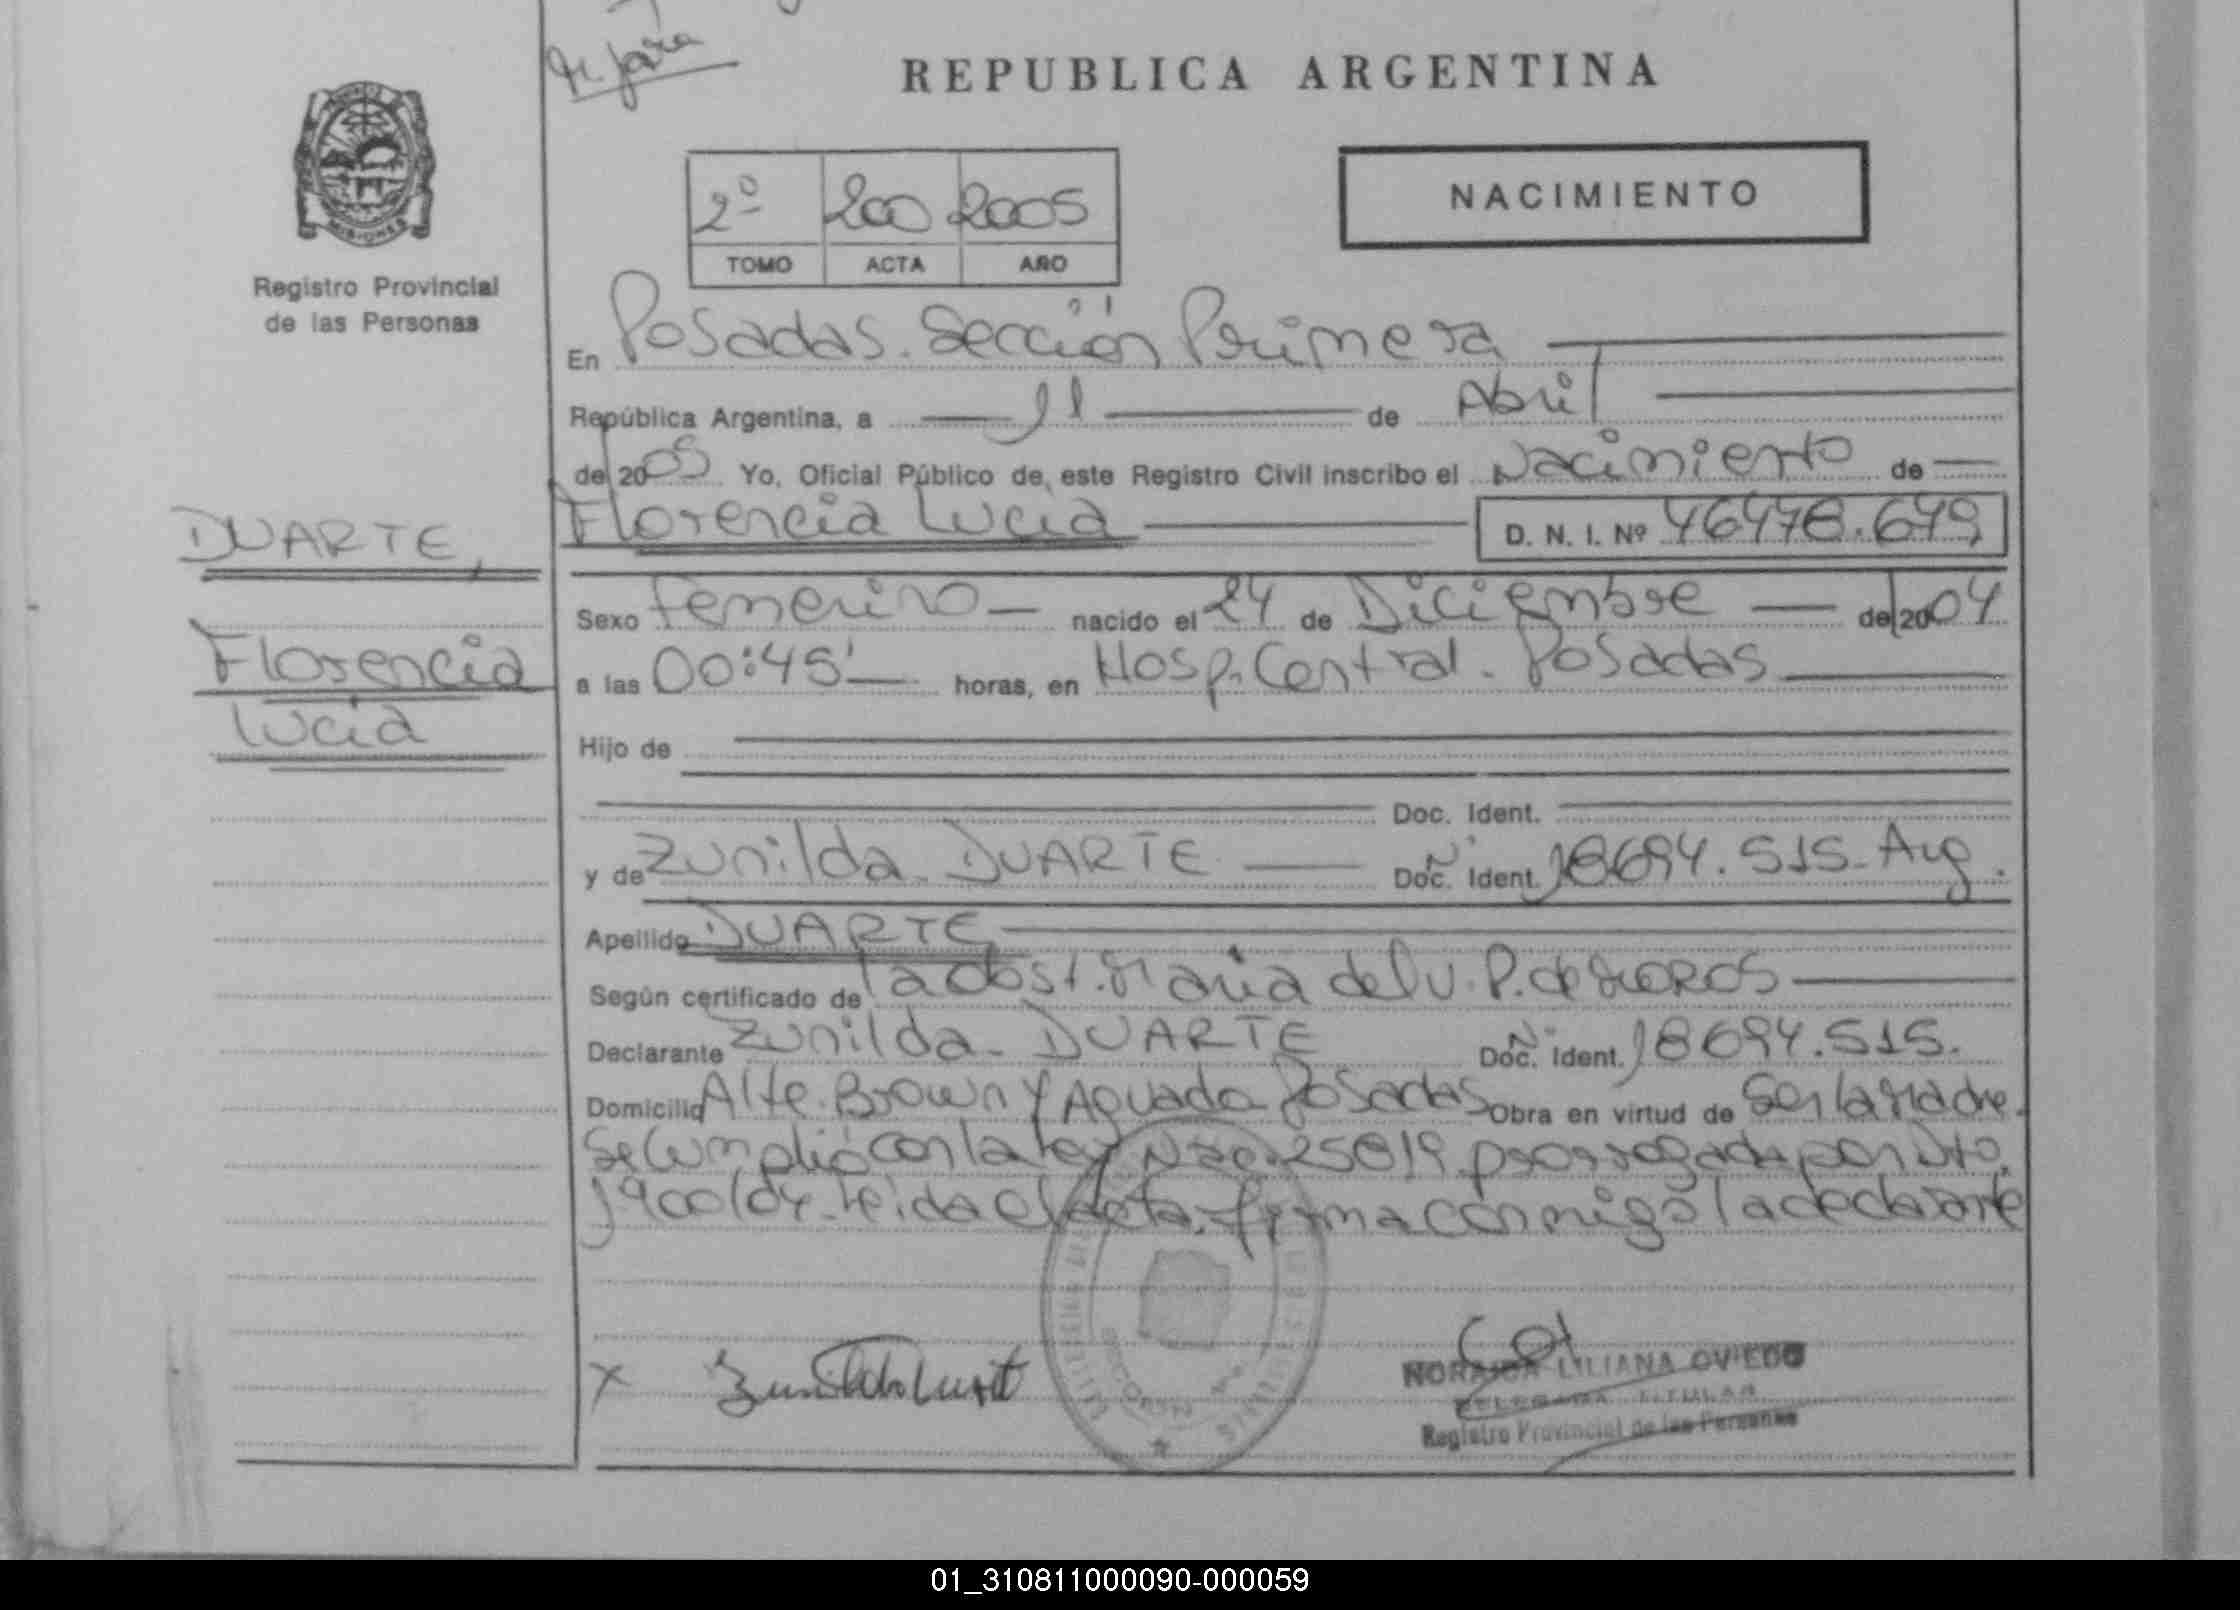 REPUBLICA ARGENTINA
MISIONES
Registro Provincial
de las Personas
2º 200 2005
TOMO ACTA AÑO
NACIMIENTO
En Posadas. Sección Primera
República Argentina, a 11 de Abril
de 2005 Yo, Oficial Público de este Registro Civil inscribo el Nacimiento de
DUARTE,
Florencia
Lucia
Florencia Lucia D. N. I. Nº 46478.679
Sexo Femenino nacido el 24 de Diciembre de 2004
a las 00:45' horas, en Hosp. Central. Posadas
Hijo de
Doc. Ident.
y de Zunilda DUARTE Doc. Ident. 18694.515- Arg.
Apellido DUARTE
Según certificado de la obst. Maria del V. P. de
Declarante Zunilda DUARTE Doc. Ident. 18694.515.
Domicilio Alte. Brown y Aguado Posadas Obra en virtud de ser la Madre.
Se cumplió con la ley Nac. 25819 prorrogada por Dto.
1900/04. Leida el Acta, firma conmigo la declarante
X Zunilda Duarte
LILIANA OVIEDO
DELEGADA TITULAR
Registro Provincial de las Personas
01_310811000090-000059